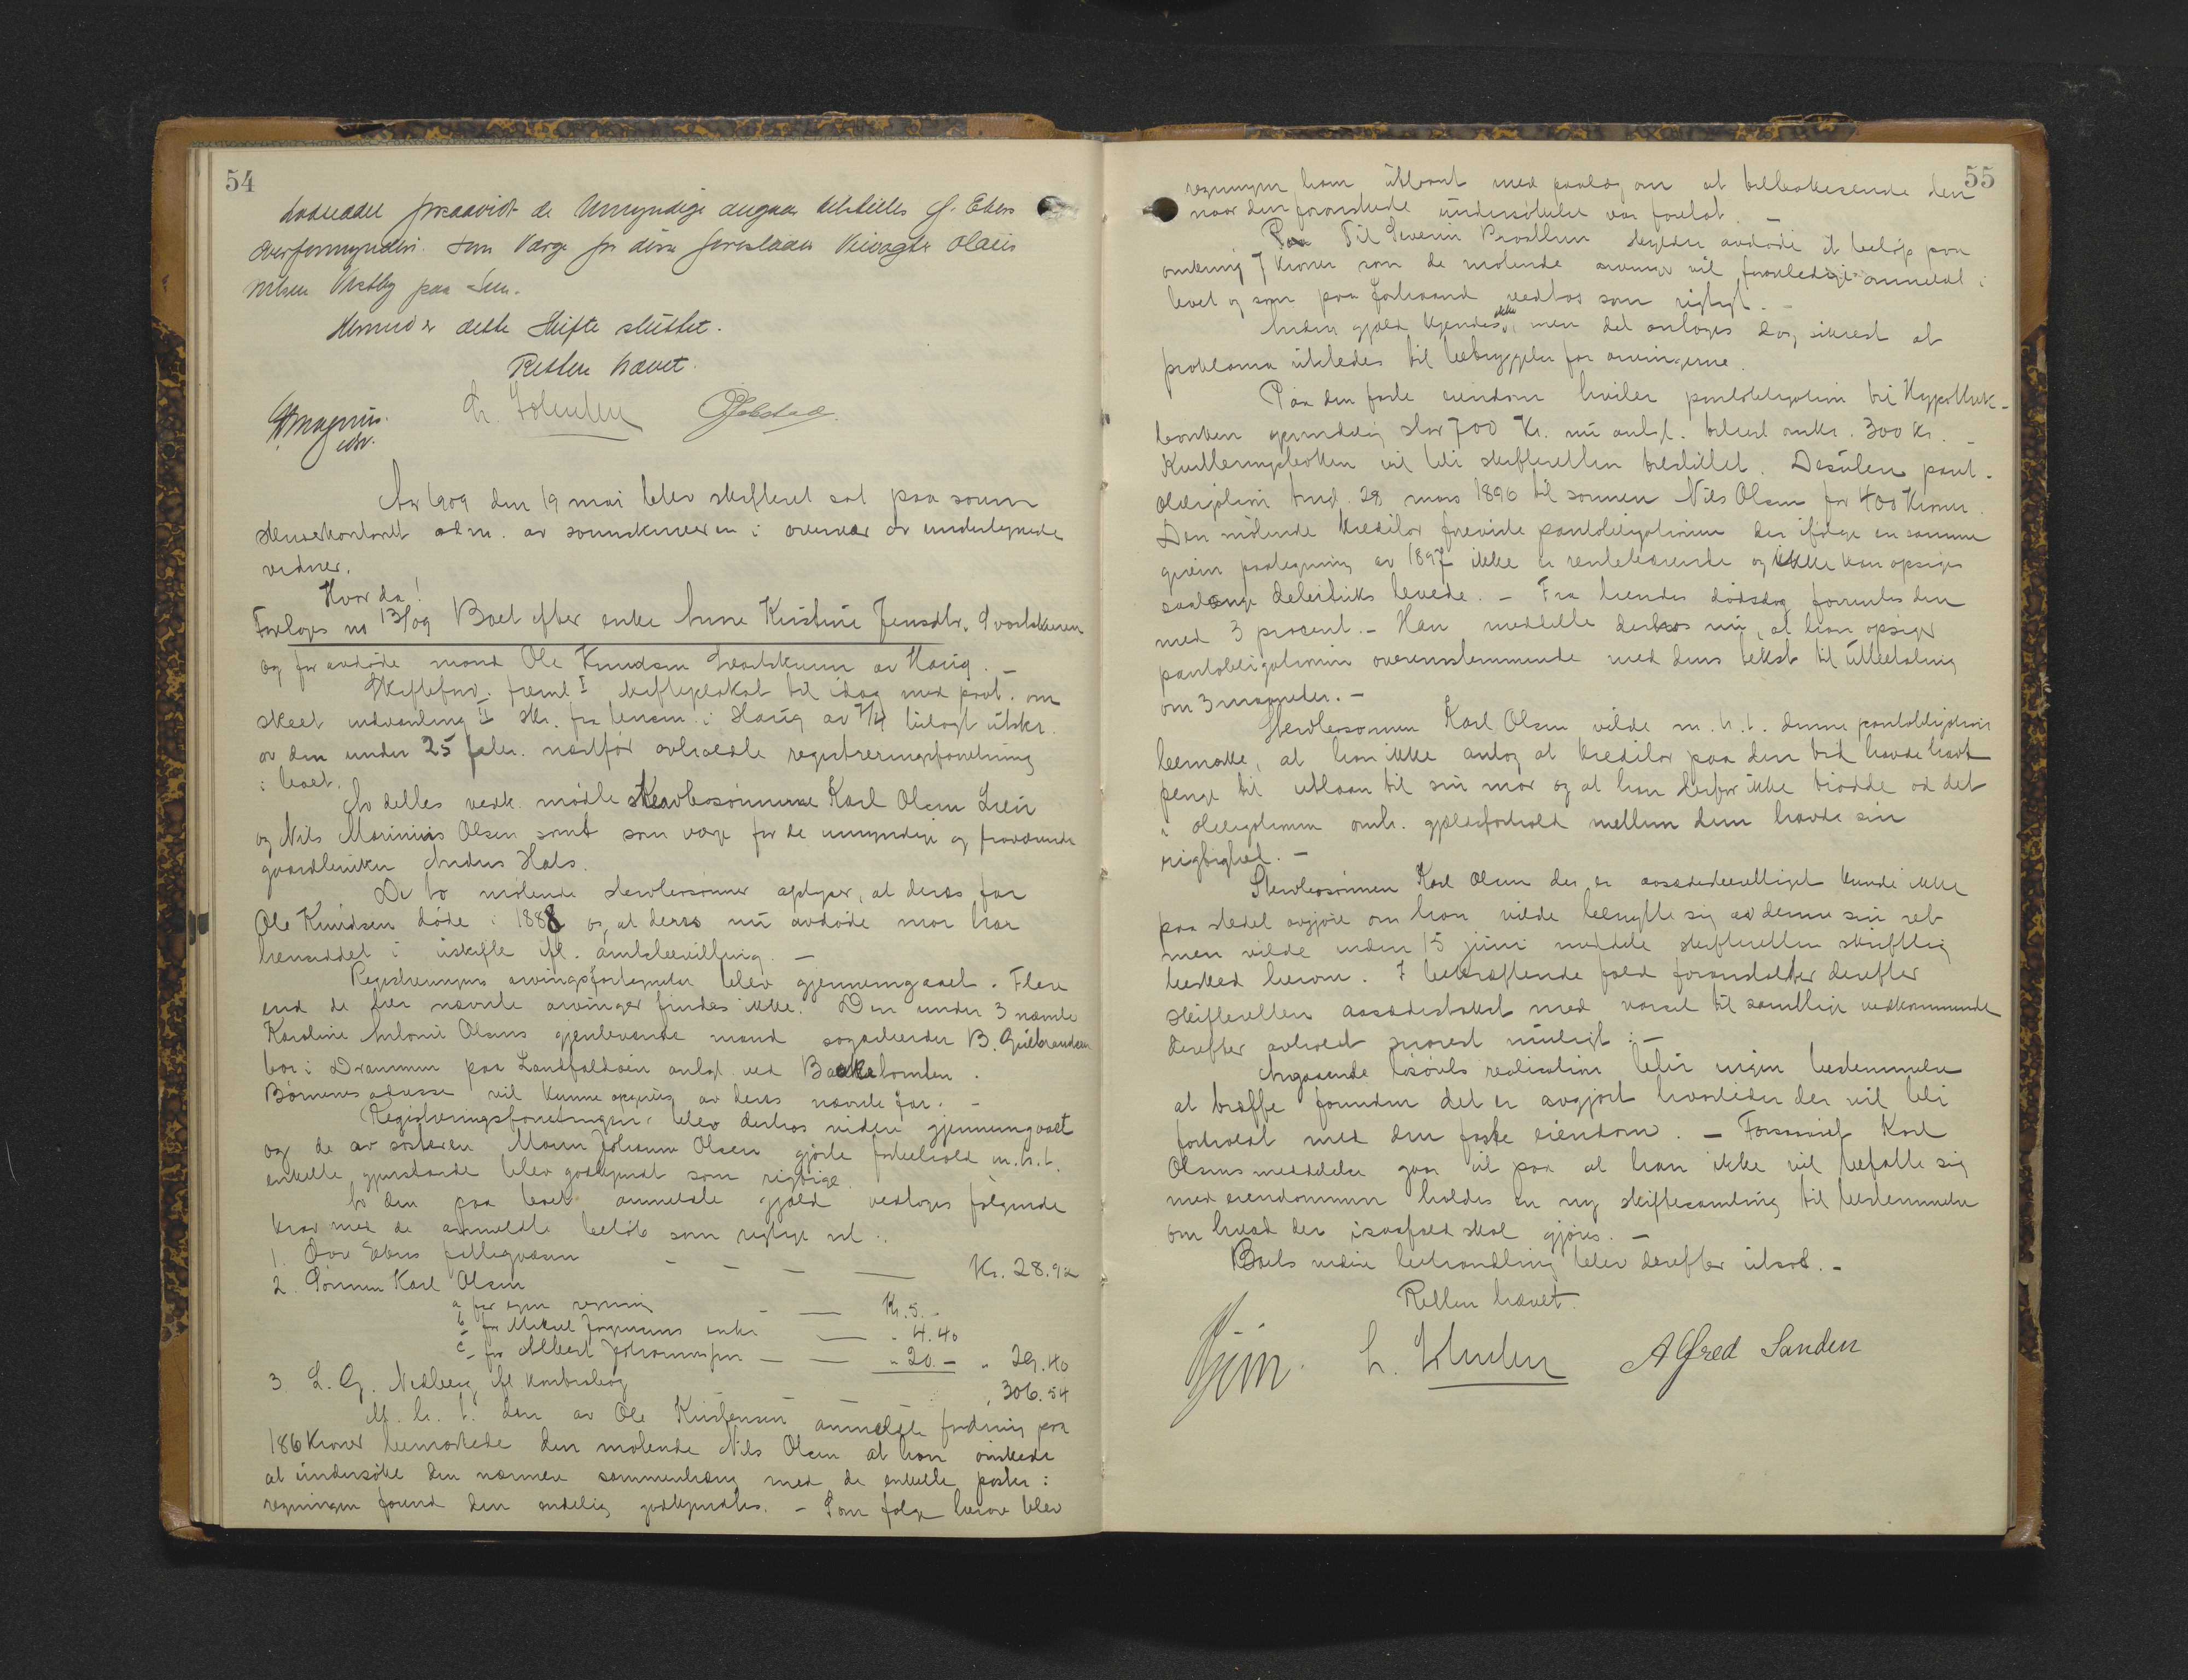 54
forsaavidt de Umyndige angaar tilstilles Ø. Ekers
overformynderi. Som Værge for disse foreslaaes Olaus
Nilsen Vestby paa
Hermed er dette Skifte sluttet.
Retten hævet.
Aar 1909 den 19 mai blev skifteret sat paa soren-
skriverkontoret adm. av sorenskriveren i overvær av undertegnede
vidner.
Hvorda!
Foretages no 13/09 Boet efter enke Anne Kirstine Jensdtr. Svartskuren
og før avdøde mand Ole Knudsen Svartskuren av Haug. -
Skifteforv. freml I skifteplakat til idag med paat. om
skeet indvarsling II skr. fra lensm. i Haug av 7/4 bilagt utskr.
av den under 25 febr. næstfør avholdte registreringsforretning
i boet.
Av dettes vedk. mødte stervbosønnerne Karl Olsen Lien
og Nils Marinius Olsen samt som verge for de umyndige og fraværende
gaardbruker Anders Hals.
De to møtende stervbosønner oplyser, at deres far
Ole Knudsen døde i 1888 og at deres nu avdøde mor har
hensiddet i uskifte ifl. amtsbevilling. -
Registreringens arvingsfortegnelse blev gjennemgaaet. Flere
end de der nævnte arvinger findes ikke. Den under 3 nævnte
Karoline Antonie Olsens gjenlevende mand sagarbeider B. Gulbrandsen
bor i Drammen paa Landfaldøen antgl. ved Bakketomten.
Børnenes adresse vil kunne opgives av deres nævnte far. -
Registreringsforretningen blev derhos videre gjennemgaaet
og de av søsteren Maren Johanne Olsen gjorte forbehold m.h.t.
enkelte gjenstande blev godkjendt som rigtige.
Av den paa boet anmeldte gjæld vedtoges følgende
krav med de anmeldte beløb som rigtige nl.:
1. Øvre Ekers fattigvæsen - - - Kr. 28.92
2. Sønnen Karl Olsen
a for egen regning - Kr. 5.-
b - for Mikael Jørgensens enke - " 4.40
c - for Albert Johannessen - - " 20.- " 29.40
3 L. G. Nedberg ifl kontrabog - " 306.54
M. h. t. den av Ole Kristensen anmeldte fordring paa
186 Kroner bemærkede den møtende Nils Olsen at han ønskede
at undersøke den nærmere sammenhæng med de enkelte poster i
regningen førend den endelig godkjendtes. - Som følge herav blev
55
regningen ham utlaant med paalæg om at tilbakesende den
naar den forønskede undersøkelse var foretat. -
Til Severin skylder avdøde et beløp paa
omkring 7 kroner som de møtende arvinger vil foranledige anmeldt i
boet og som paa forhaand vedtas som rigtigt. -
Anden gjæld kjendes ikke, men det antages dog sikrest at
proklama utstedes til betryggelse for arvingerne.
Paa den faste eiendom hviler pantobligation til Hypothek-
banken oprindelig stor 700 Kr. nu antgl. betalt omkr. 300 kr. -
Kvitteringsboken vil bli skifteretten tilstillet. Desuten pant-
obligation tingl. 28 mars 1896 til sønnen Nils Olsen for 400 Kroner.
Den møtende kreditor foreviste pantobligationen der ifølge en samme
given paategning av 1897 ikke er rentebærende og ikke kan opsiges
saalænge debitrix levede. - Fra hendes dødsdag forrentes den
med 3 procent. - Han meddelte derhos nu, at han opsiger
pantobligationen overensstemmende med dens tekst til utbetaling
om 3 maaneder. -
Stervbosønnen Karl Olsen vilde m. h. t. denne pantobligation
bemærke, at han ikke antog at kreditor paa den tid havde havt
penge til utlaan til sin mor og at han derfor ikke trodde at det
i obligationen omh. gjældsforhold mellem dem havde sin
rigtighed. -
Stervbosønnen Karl Olsen der er aasædesberettiget kunde ikke
paa stedet avgjøre om han vilde benytte sig av denne sin ret
men vilde inden 15 juni meddele skifteretten skriftlig
besked herom. I bekræftende fald foranstalter derefter
skifteretten aasædestakst med varsel til samtlige vedkommende
derefter avholdt snarest muligt. -
Angaaende løsørets realisation blir ingen bestemmelse
at træffe forinden det er avgjort hvorledes der vil bli
forholdt med den faste eiendom. - Forsaavidt Karl
Olsens meddelelse gaar ut paa at han ikke vil befatte sig
med eiendommen holdes en ny skiftesamling til bestemmelse
om hvad der isaafald skal gjøres. -
Boets videre behandling blev derefter utsat. -
Retten hævet.
Alfred Sanden